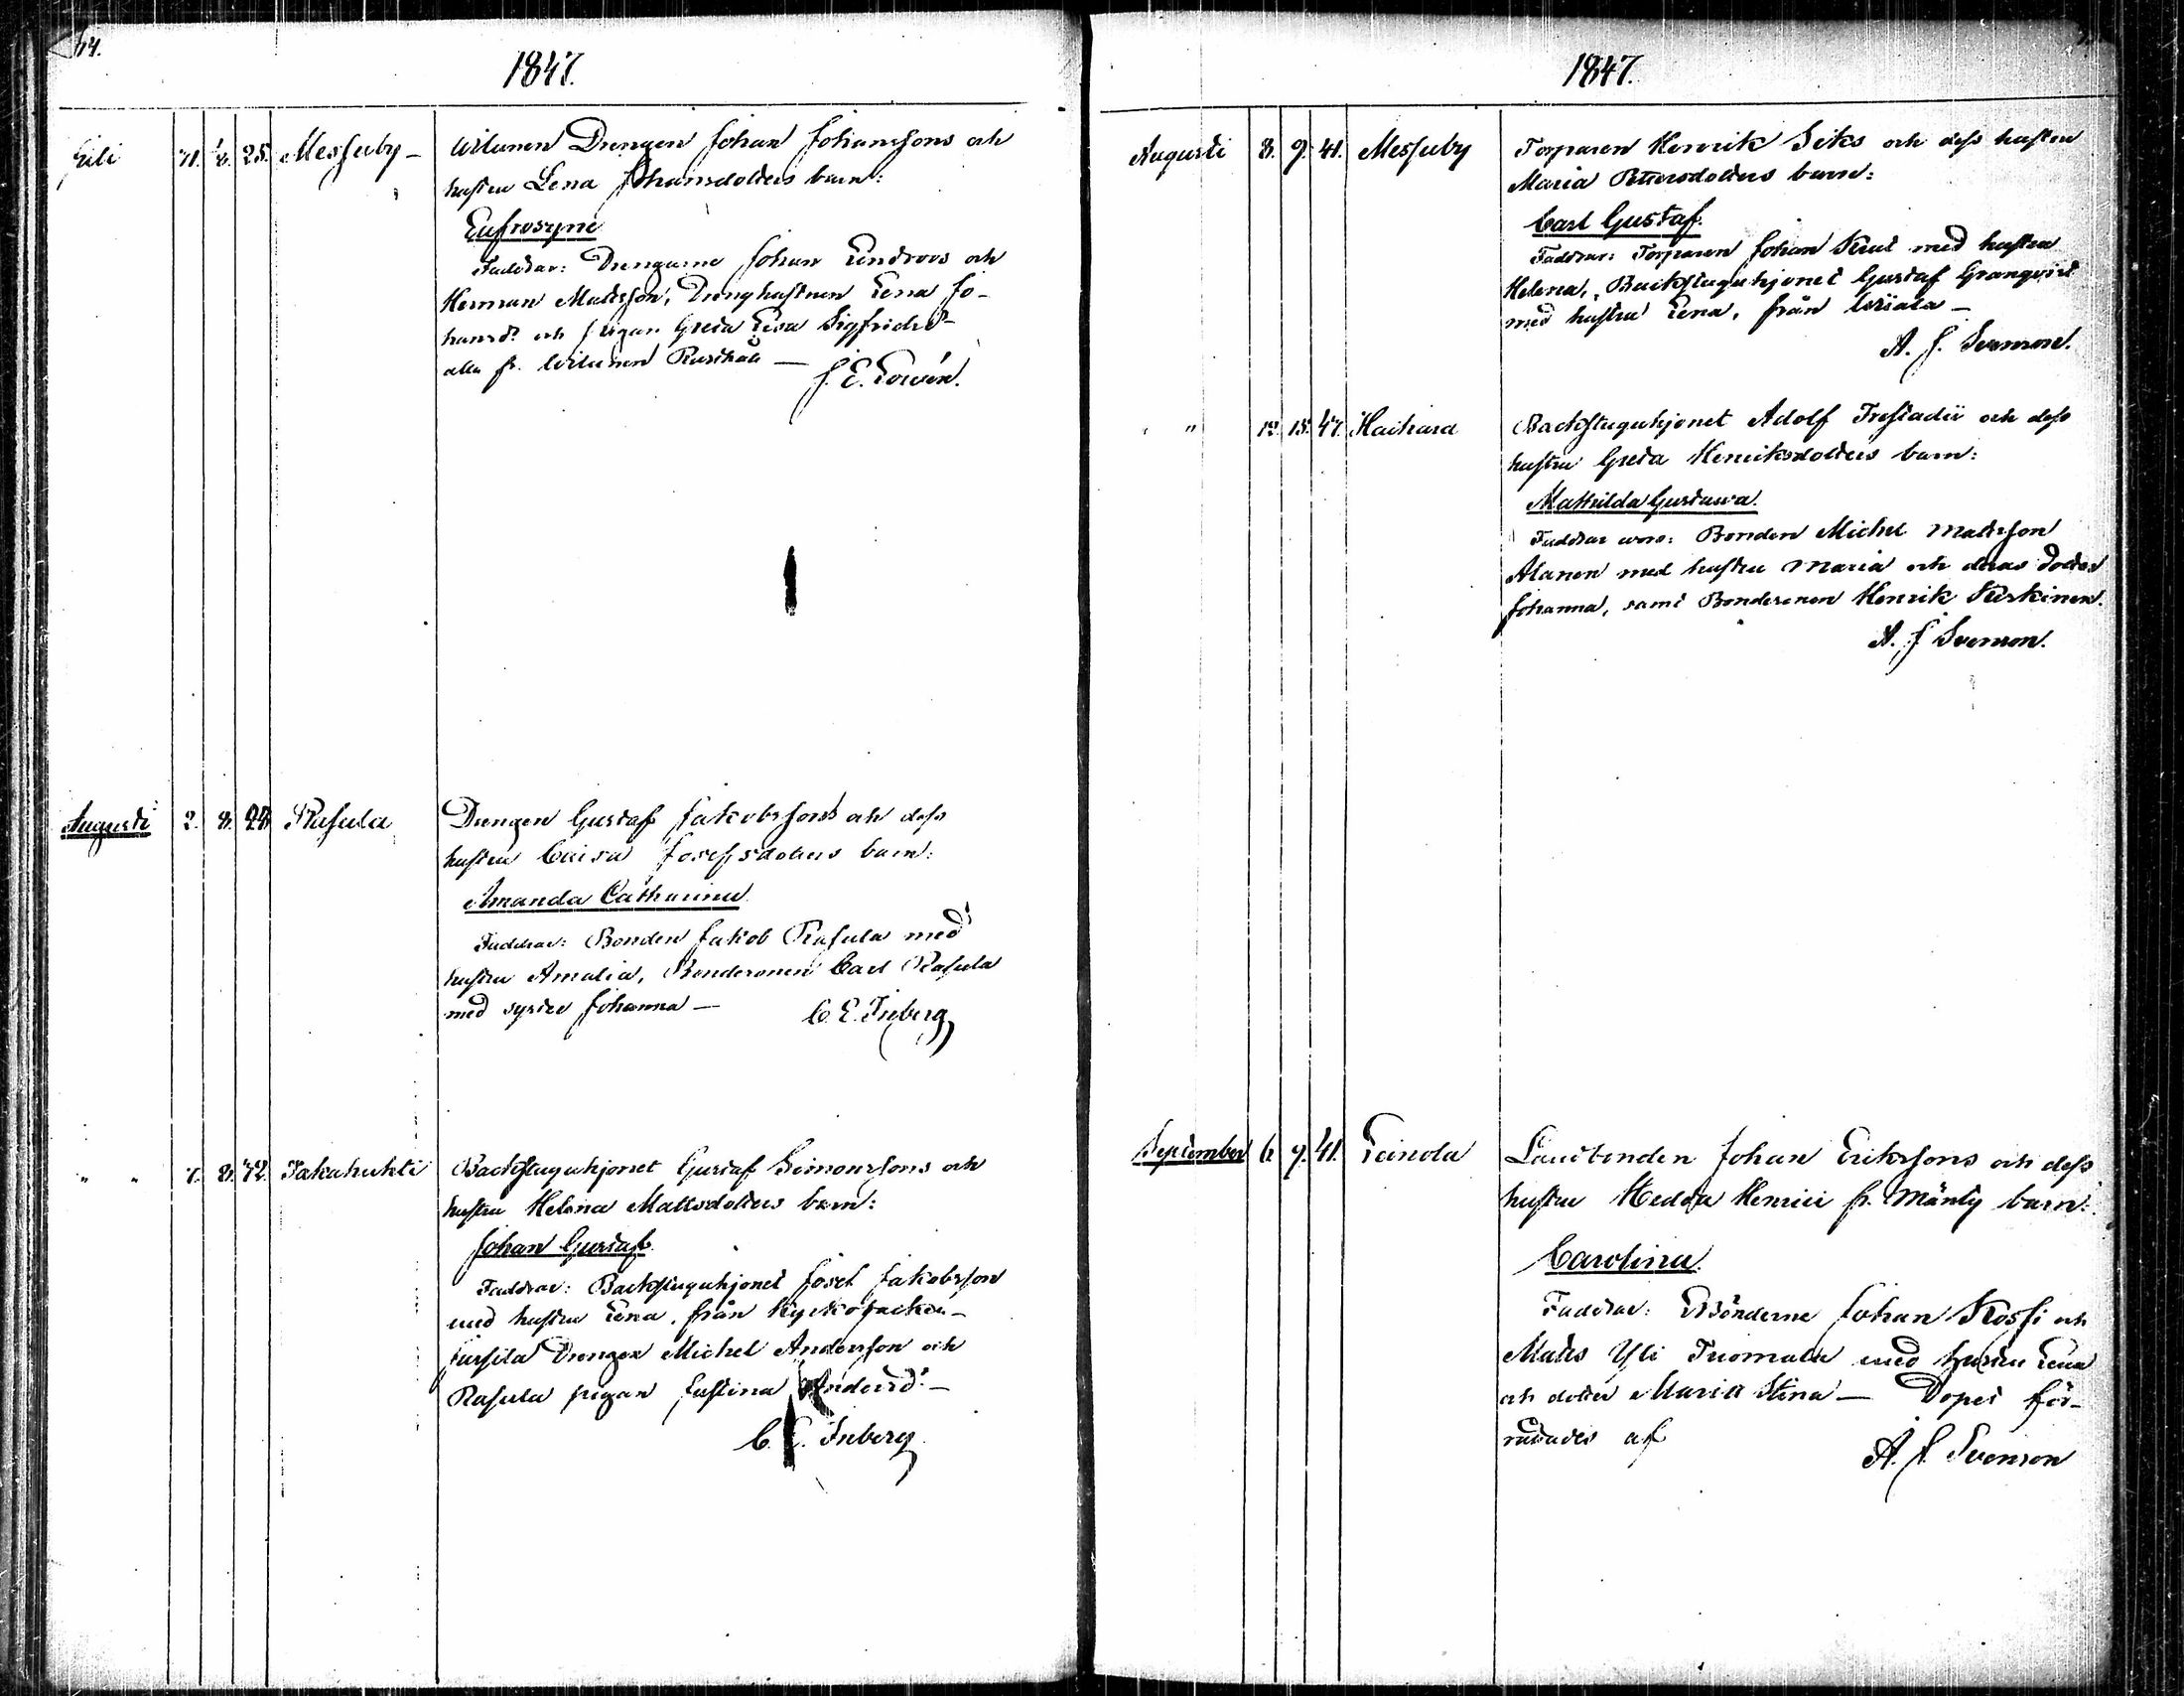 64.
1847.
Juli 31. 1/8. 25. Messuby - Wilunen Drengen Johan Johanssons och
hustru Lena Johansdotters barn:
Eufrosyne
Faddrar: Drengarne Johan Lindroos och
Herman Mattsson, Drenghustrun Lena Jo-
hansd:r och pigan Greta Lisa Sigfridsd:r
alla fr. Wilunen Rusthåll —
J. E. Lowén.
Augusti 2. 8. 28 Rasula Drengen Gustaf Jakobssons och dess
hustru Caisa Josefsdotters barn:
Amanda Catharina
Faddrar: Bonden Jakob Rasula med
hustru Amalia, Bondesonen Carl Rasula
med syster Johanna —
C. E. Inberg
" " 7. 8. 42. Takahuhti Backstuguhjonet Gustaf Simonssons och
hustru Helena Mattsdotters barn:
Johan Gustaf.
Faddrar: Backstuguhjonet Josef Jakobsson
med hustru Lena, från
Drengen Michel Andersson och
Rasula pigan Justina Andersd:r —
C. E. Inberg
1847.
Augusti 8. 9. 41. Messuby Torparen Henrik Seks och dess hustru
Maria Pettersdotters barn:
Carl Gustaf.
Faddrar: Torparen Johan med hustru
Helena, Backstuguhjonet Gustaf Granqvist
med hustru Lena, från Wiiala —
A. J. Svenson.
" 12. 15. 47. Haihara Backstuguhjonet Adolf Frestadii och dess
hustru Greta Henriksdotters barn:
Mathilda Gustawa.
Faddrar woro: Bonden Michel Mattsson
Alanen med hustru Maria och deras dotter
Johanna, samt Bondesonen Henrik Turkinen.
A. J Svenson.
September 6 9. 41. Leinola Landbonden Johan Erikssons och dess
hustru Hedda Henrici fr. Mänty barn:
Carolina.
Faddrar: Bönderne Johan Kossi och
Matts Yli Tuomala med hustru Lena
och dotter Maria Stina — Dopet för-
rättades af
A. J. Svenson